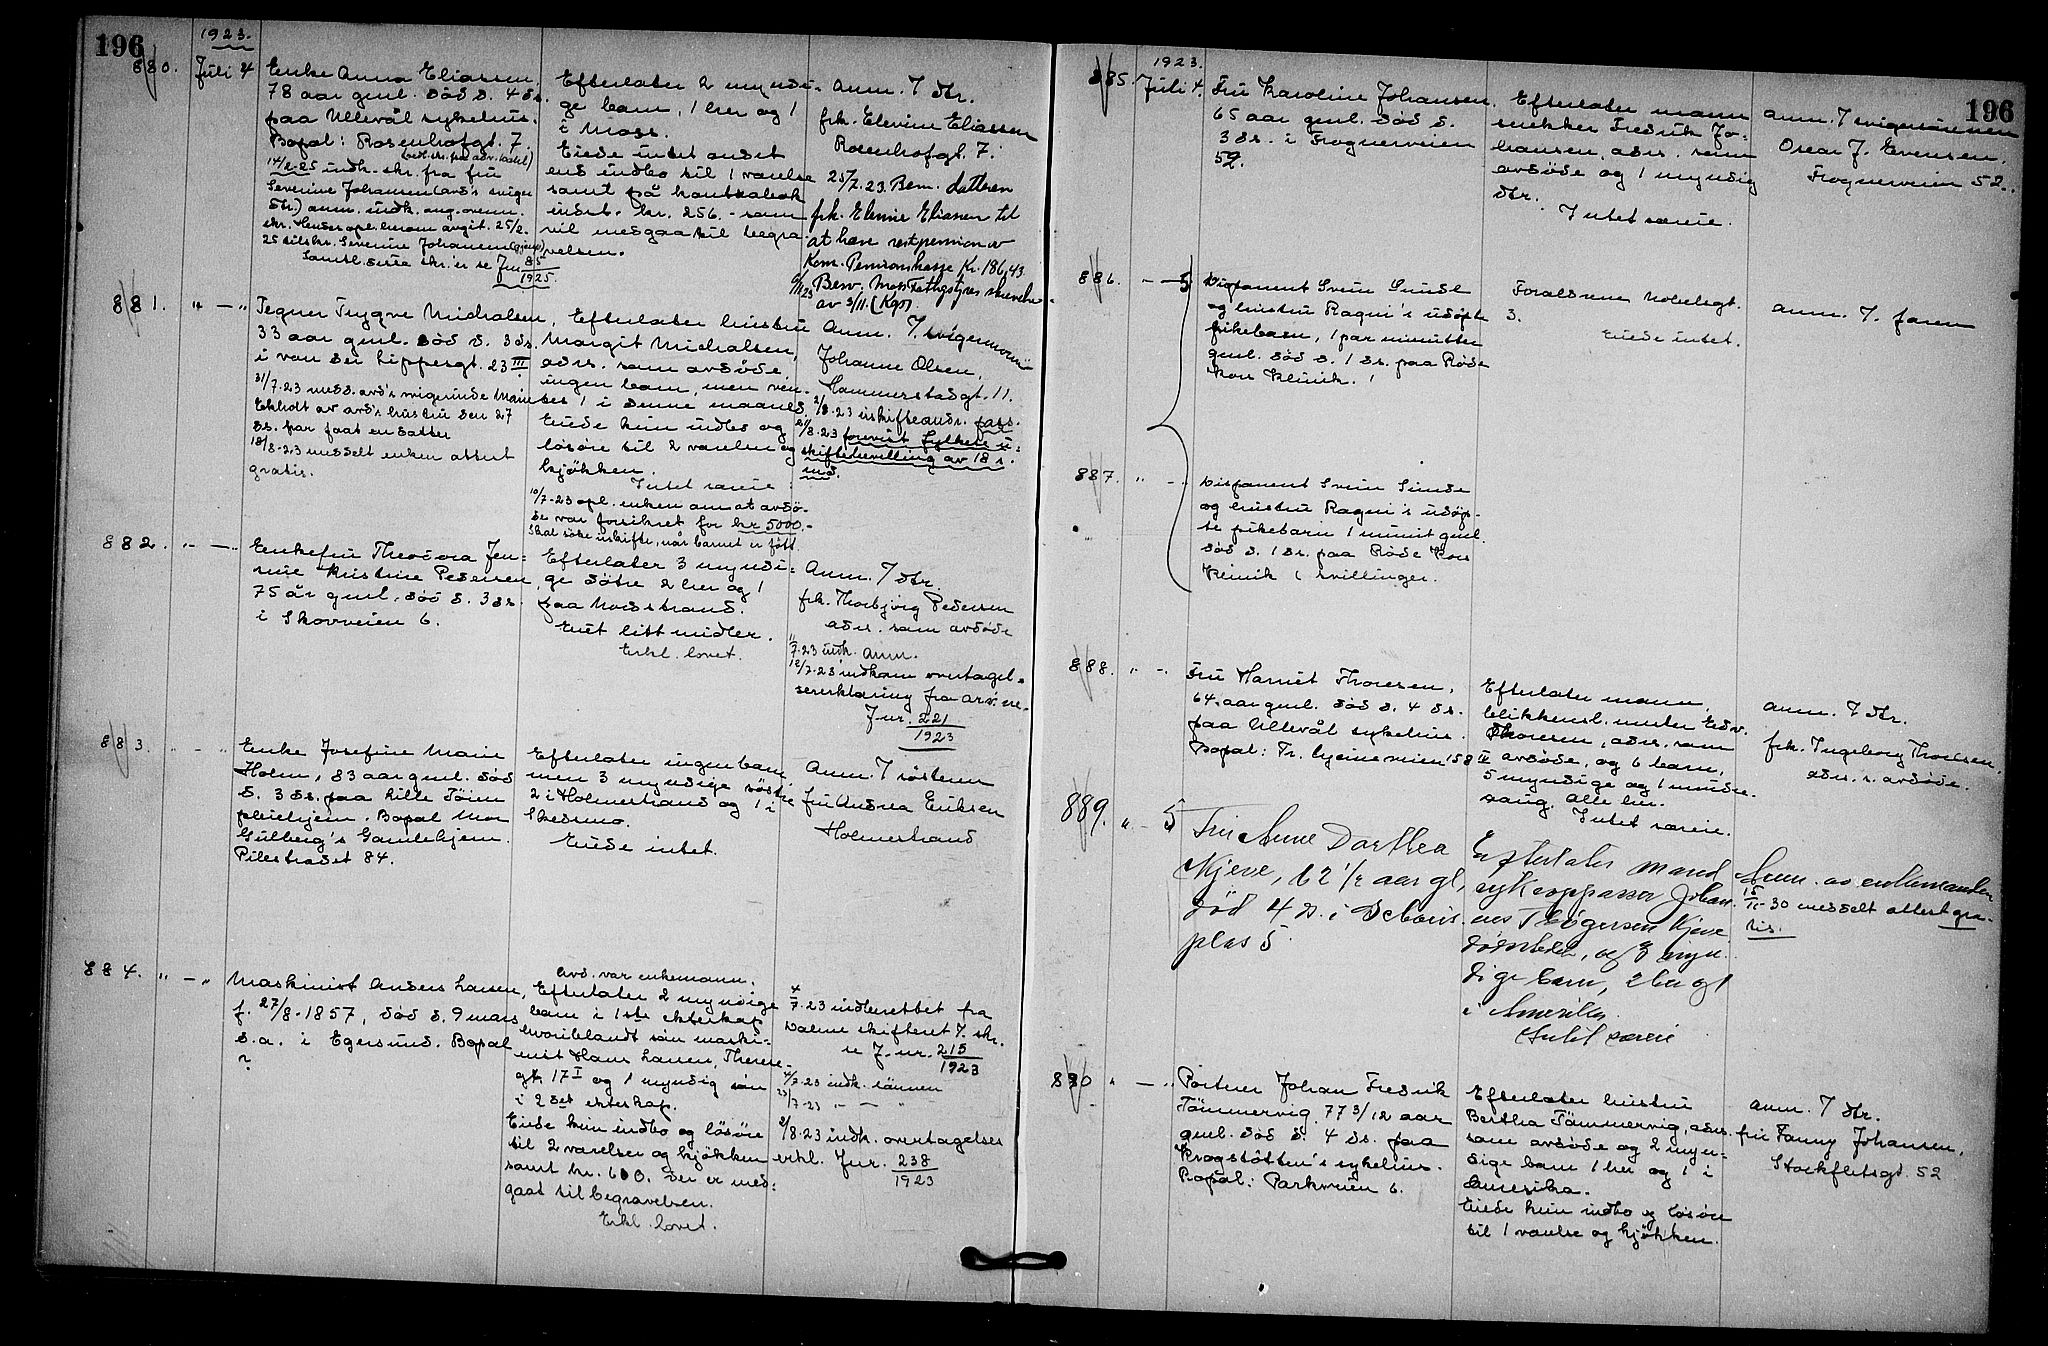 196
1923.
880.
Juli 4
Enke Anna Eliassen,
78 aar gml. död d. 4 ds.
paa Ullevål sykehus.
Bopæl: Rosenhofgt. 7.
14/2-25 indk. skr. fra fru
Severine Johansen (avd's sviger
dtr.) anm. indk. ang. ovenn.
25/2.
25 tilskr. Severine Johansen
Samtl. disse skr. er se Jnr 85/1925.
Efterlater 2 myndi-
ge barn, 1 her og 1
i Moss.
Eiede intet andet
end indbo til 1 værelse
samt på bankbok
indst. kr. 256.- som
vil medgaa til begra-
velsen.
Anm. 7 dtr.
frk. Elevine Eliassen
Rosenhofgt. 7.
25/7.23. Bem. datteren
frk. Elevine Eliassen til
at hæve restpension av
Kom. Pensionskasse Kr. 186,43
6/11 23 Besv. Moss skrivelse
av 3/11. (Kgs)
881.
" — "
Tegner Trygve Michalsen,
33 aar gml. död d. 3 ds.
i van der Lippesgt. 23 III
31/7.23 medd. avd's svigerinde Marie
Ekholt av avd's hustru den 27
ds. har faat en datter
18/8-23 meddelt enken attest
gratis.
Efterlater hustru
Margit Michalsen,
adrs. som avdöde,
ingen barn, men ven-
tes 1 i denne maaned.
Eiede kun indbo og
lösöre til 2 værelser og
kjökken.
Intet særeie.
10/7-23 opl. enken om at avdö-
de var forsikret for kr 5000.-
Skal söke uskifte, når barnet er född.
Anm. 7. svigermor
Johanne Olsen,
Hammerstadsgt. 11.
2/8.23 uskifteandr. pass.
21/8.23 forevist Fylkets u-
skiftebevilling av 18 s.
md.
882.
" — "
Enkefru Theodora Jen-
sine Kristine Pedersen
75 år gml. död d. 3 ds.
i Skovveien 6.
Efterlater 3 myndi-
ge dötre 2 her og 1
paa Nordstrand.
Eiet litt midler.
Erkl. lovet.
Anm. 7 dtr.
frk. Thorbjörg Pedersen
adrs. som avdöde
7.23 indk. anm.
12/7.23 indkom overtagel-
seserklæring fra arv.ne.
Jnr. 221/1923
883.
" — "
Enke Josefine Marie
Holm, 83 aar gml. död
d. 3 ds. paa Lille Töien
pleiehjem. Bopæl Mor
Gulberg's Gamlehjem.
Pilestrædet 84.
Efterlater ingen barn
men 3 myndige söstre
2 i Holmestrand og 1 i
Skedsmo.
Eiede intet.
Anm. 7 söstern
fru Andrea Eriksen
Holmestrand
884.
" — "
Maskinist Anders Larsen,
f. 27/8-1857, död d. 9 mars
d.a. i Egersund. Bopæl
?
Avd. var enkemann.
Efterlater 2 myndige
barn i 1ste ekteskap
hvoriblandt sön maski-
nist Hans Larsen, Therese-
gt. 17 I og 1 myndig sön
i 2det ekteskap.
Eiede kun indbo og lösöre
til 2 værelser og kjökken
samt kr. 600. Der er med-
gaat til begravelsen.
Erkl. lovet.
4/7.23 indberettet fra
Dalene skifteret 7. skr.
se J.nr. 215/1923
4/7.23 indk. sönnen
23/7.23 — — "
2/8.23 indk. overtagelses
erkl. Jnr. 238/1923
1923.
196
885.
Juli 4.
Fru Karoline Johansen,
65 aar gml. död d.
3 ds. i Frognerveien
52.
Efterlater mann
snekker Fredrik Jo-
hansen, adrs. som
avdöde og 1 myndig
dtr.
Intet særeie.
Anm. 7 svigersönnen
Oscar J. Evensen.
Frognerveien 52.
886.
" — 5
Disponent Svein Sunde
og hustru Ragni's udöpte
pikebarn, 1 par minutter
gml. död d. 1 ds. paa Röde
Kors Klinik.
Forældrene Nobelsgt.
3.
Eiede intet.
Anm. 7. faren
887.
" — "
Disponent Svein Sunde
og hustru Ragni's udöp-
te pikebarn 1 minut gml.
död d. 1 ds. paa Röde Kors
Klinik (tvillinger.
888.
" — "
Fru Harriet Thoresen,
64 aar gml. död d. 4 ds.
paa Ullevål sykehus.
Bopæl: Tr. hjemsveien 58 II
Efterlater mann,
blikkensl. mester Edv.
Thoresen, adrs. som
avdöde, og 6 barn,
5 myndige og 1 minder-
aarig. Alle her.
Intet særeie.
Anm. 7 dtr.
frk. Ingeborg Thoresen,
adrs. s. avdöde.
889.
" — 5
Fru Anne Dorthea
Kjeve, 62 1/2 aar gl,
död 4 ds. i Schous
plas 5.
Efterlater mand
sykepasser Johan-
nes Thögersen Kjeve
dödsstedet, og 3 myn-
dige barn, 2 her og 1
i Amerika.
Intet særeie
Anm. av enkemanden
15/11-30 meddelt attest gra-
tis.
890
" — "
Portner Johan Fredrik
Tömmervig, 77 3/12 aar
gml. död d. 4 ds. paa
Krogstötten's sykehus.
Bopæl: Parkveien 6.
Efterlater hustru
Bertha Tömmervig, adrs.
som avdöde og 2 myn-
dige barn 1 her og 1 i
Amerika.
Eiede kun indbo og lösöre
til 1 værelse og kjökken.
Anm. 7 dtr.
fru Fanny Johansen,
Stockfletsgt. 52